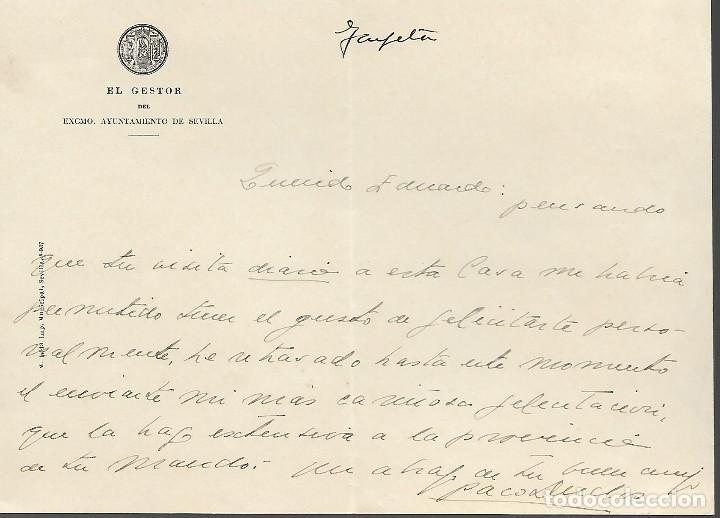 Tarjeta
EL GESTOR
DEL
EXCMO. AYUNTAMIENTO DE SEVILLA
Querido Eduardo:
pensando
que tu visita diaria a esta Casa me habria
permitido tener el gusto de felicitarte perso-
nalmente, he retrasado hasta este momento
el enviarte mi mas cariñosa felicitacion,
que la hago extensiva a la provincia
de tu mando.- Un abrazo de tu buen amigo
Paco
Imp. Municipal, Sevilla
todocoleccion